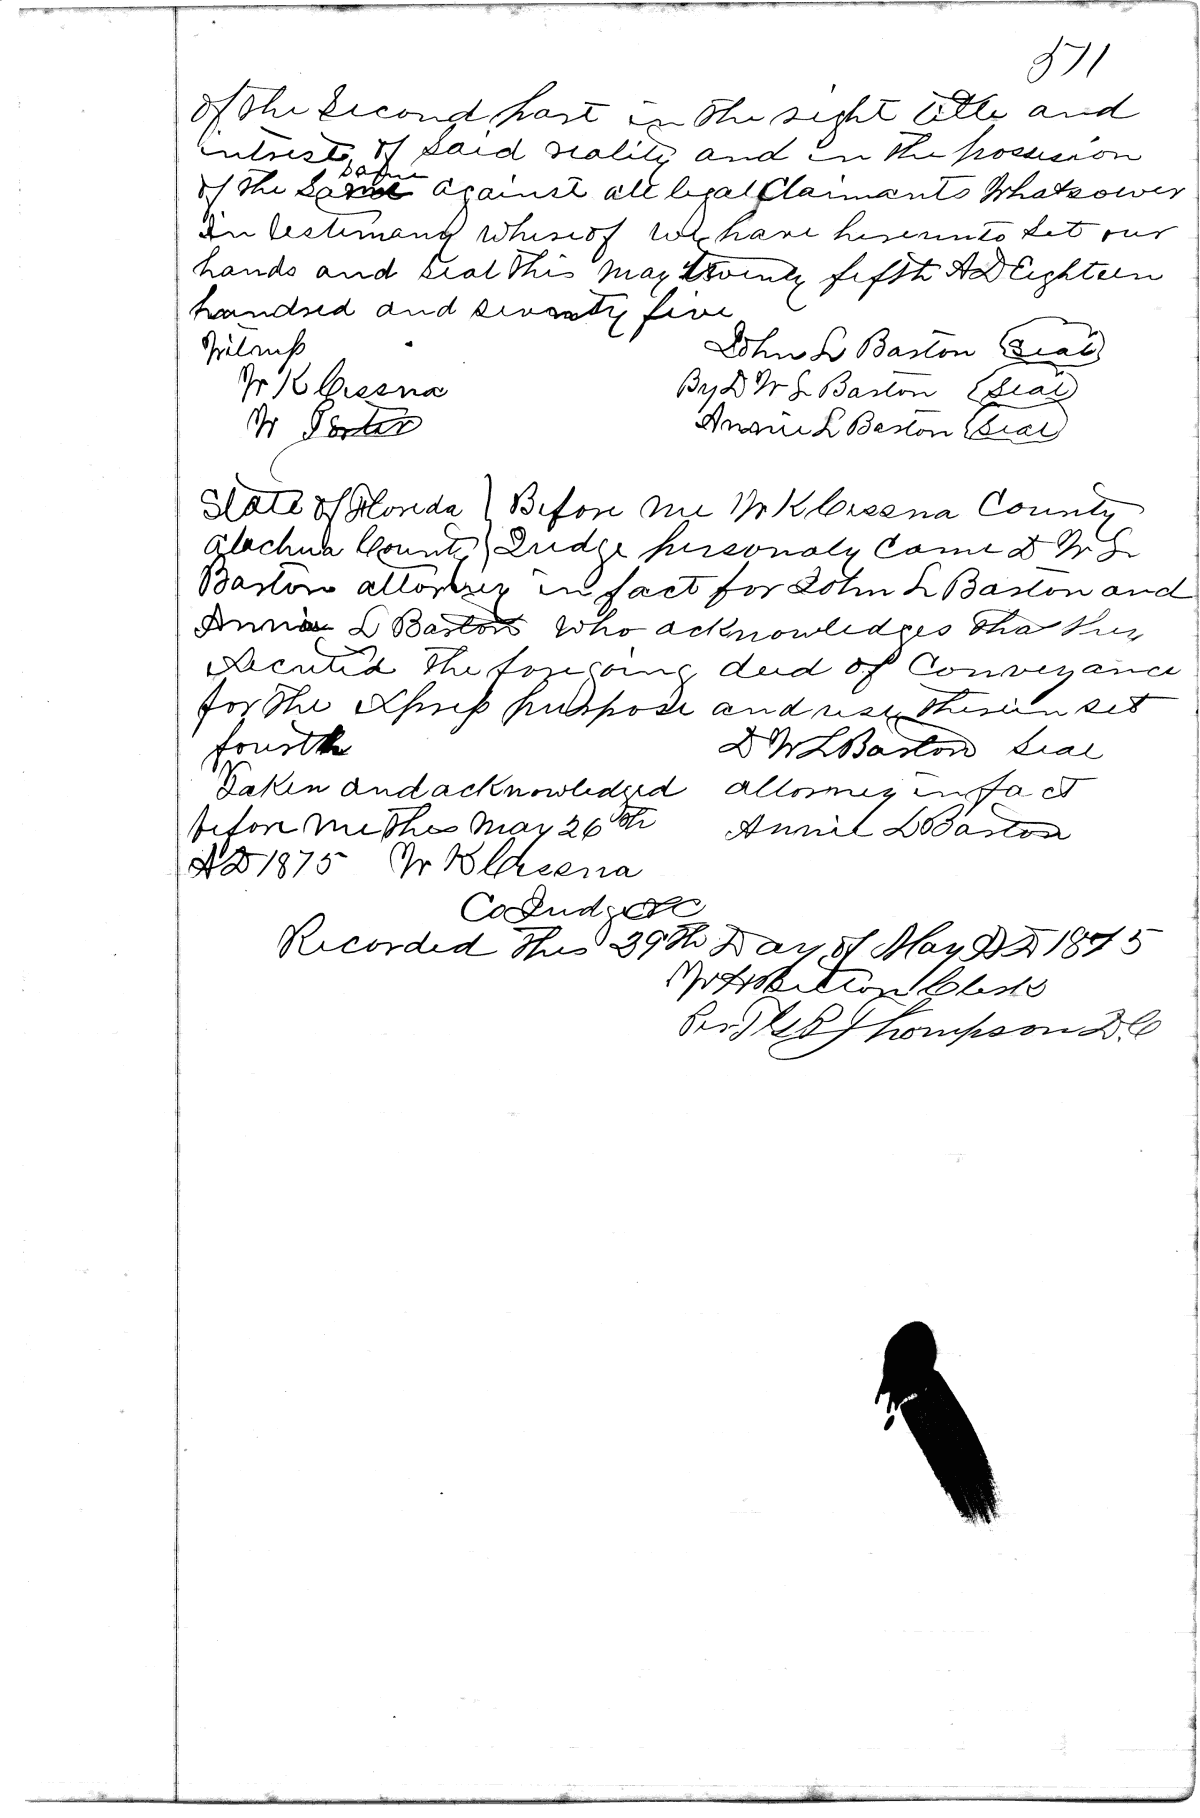 571
of the Second part in the right title and
intrest of Said reality and in the possession
same
of the Same against all legal Claimants Whatsoever
In testimony whereof we have hereunto Set our
hands and seal this May twenty fifth AD Eighteen
hundred and seventy five
Witness
John L Barton Seal
W K Cessna
By D W L Barton Seal
W Porter
Annie L Barton Seal
State of Florida } Before me W K Cessna County
Alachua County } Judge personaly Came D W L
Barton attorney in fact for John L Barton and
Annie L Barton who acknowledges that they
Executed the foregoing deed of Conveyance
for the Express purpose and use therein set
fourth D W L Barton Seal
Taken and acknowledged attorney in fact
before me this May 26th Annie L Barton
AD 1875 W K Cessna
Co Judge AC
Recorded this 29th Day of May AD 1875
Clerk
Per Thompson D.C